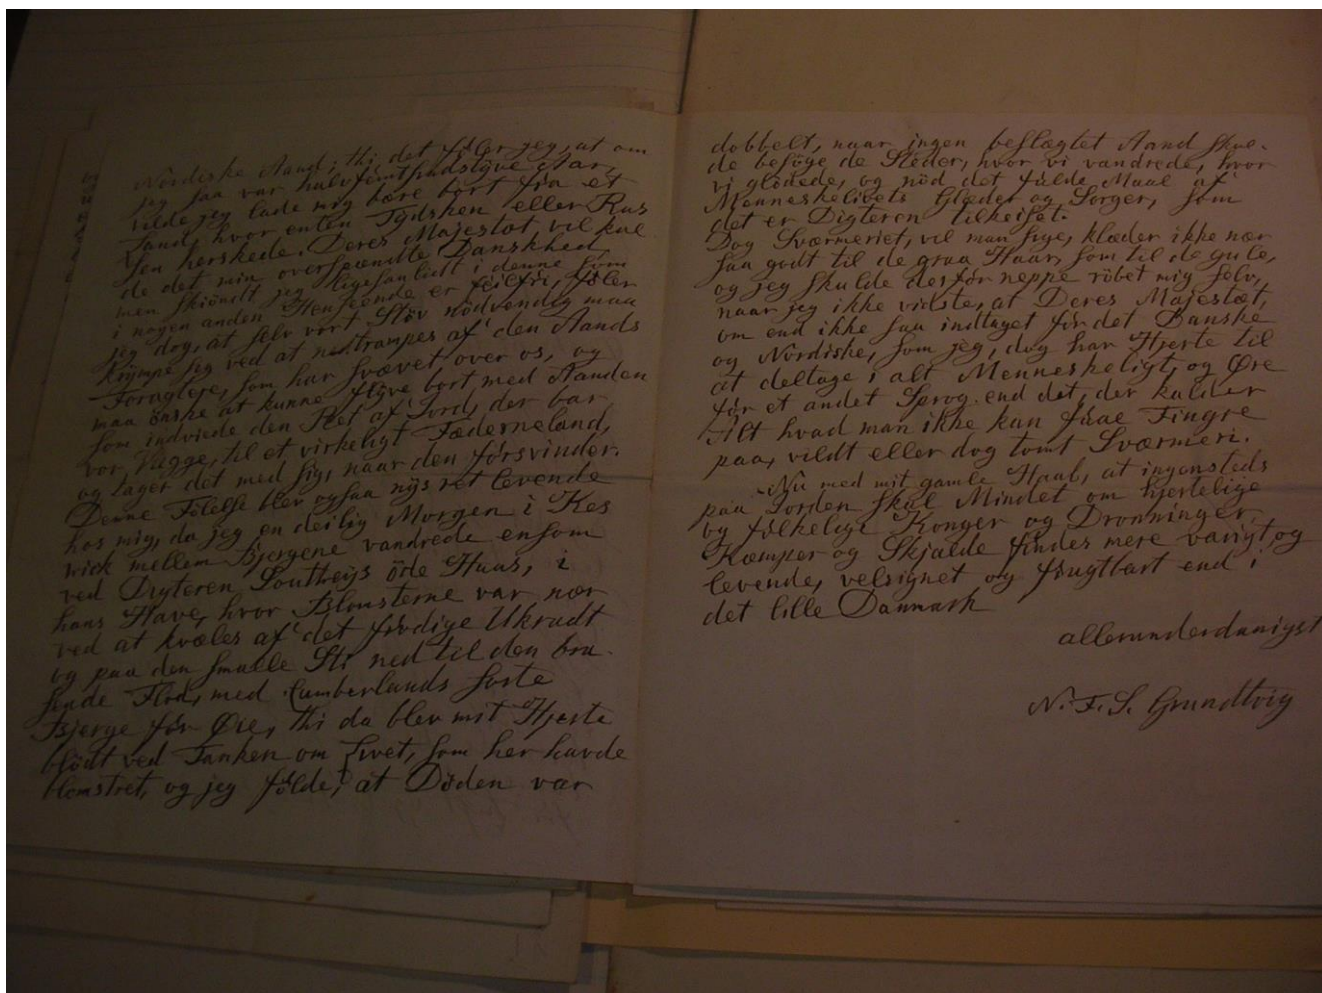 Nordiske Aand; thi det föler jeg, at om
jeg saa var halvfemtsindstyve Aar,
vilde jeg lade mig bære bort fra et
Land, hvor enten Tydsken eller Rus
sen herskede. Deres Majestæt, vil kal
de det min overspændte Danskhed,
men skiöndt jeg ligesaalidt i denne som
i nogen anden Henseende er feilfri, föler
jeg dog, at selv vort Stöv nödvendig maa
krympe sig ved at nedtrampes af den Aands
Foragtere, som har svævet over os, og
maa önske at kunne flyve bort med Aanden
som indviede den Plet af Jord, der bar
vor Vugge, til et virkeligt Fæderneland,
og tager det med sig, naar den forsvinder.
Denne Fölelse blev ogsaa nys ret levende
hos mig, da jeg en deilig Morgen i Kes
wick mellem Bjergene vandrede ensom
ved Digteren Southeys öde Huus, i
hans Have, hvor Blomsterne var nær
ved at kvæles af det frodige Ukrudt
og paa den smalle Sti ned til den bru-
sende Flod, med Cumberlands sorte
Bjerge för Øie, thi da blev mit Hjerte
blödt ved Tanken om Livet, som her havde
blomstret, og jeg földe, at Döden var
dobbelt, naar ingen beslægtet Aand skul-
de besöge de Steder, hvor vi vandrede, hvor
vi glödede, og nöd det fulde Maal af
Menneskelivets Glæder og Sorger, som
det er Digteren tilkeiset.
Dog Sværmeriet, vil man sige, klæder ikke nær
saa godt til de graa Haar, som til de gule,
og jeg skulde derfor neppe röbet mig selv,
naar jeg ikke vidste, at Deres Majestæt,
om end ikke saa indtaget for det Danske
og Nordiske, som jeg, dog har Hjerte til
at deltage i alt Menneskeligt, og Øre
för et andet Sprog end det, der kalder
Alt hvad man ikke kan faae Fingre
paa, vildt eller dog tomt Sværmeri.
Nu med mit gamle Haab, at ingensteds
paa Jorden skal Mindet om hjertelige
og folkelige Konger og Dronninger,
Kæmper og Skjalde findes mere varigt og
levende, velsignet og frugtbart end i
det lille Danmark
allerunderdanigst
N. F. S. Grundtvig